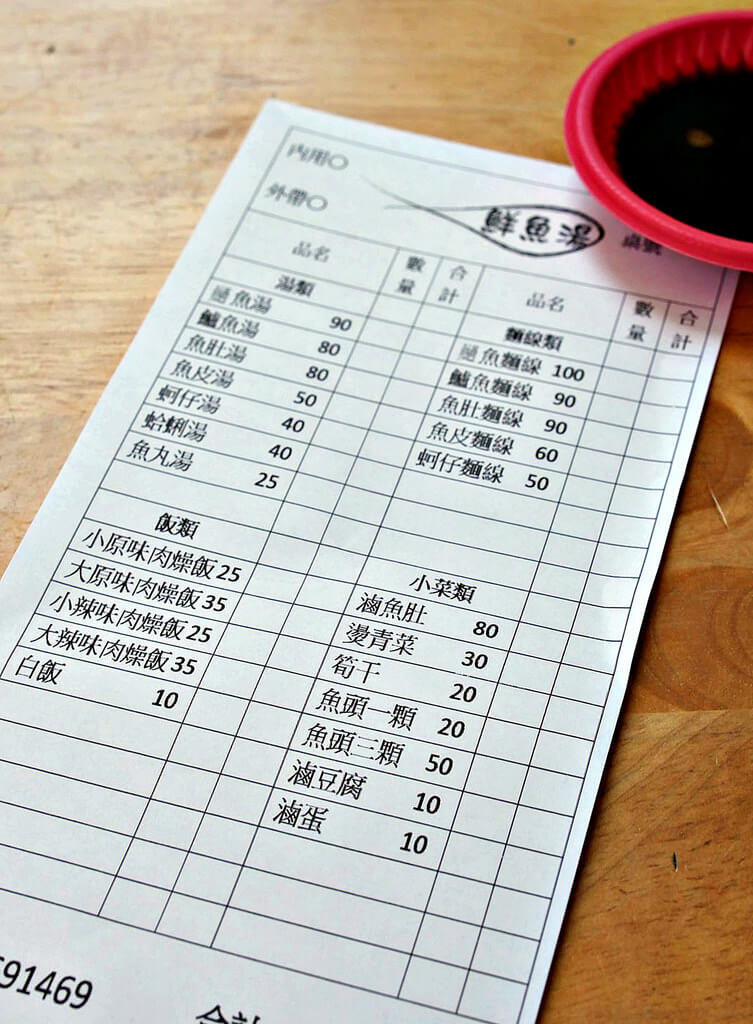 內用○
外帶○
品名 數量 合計 品名 數量 合計
湯類
魚湯 90
鱸魚湯 80
魚肚湯 80
魚皮湯 50
蚵仔湯 40
蛤蜊湯 40
魚丸湯 25
飯類
小原味肉燥飯 25
大原味肉燥飯 35
小辣味肉燥飯 25
大辣味肉燥飯 35
白飯 10
麵線類
魚麵線 100
鱸魚麵線 90
魚肚麵線 90
魚皮麵線 60
蚵仔麵線 50
小菜類
滷魚肚 80
燙青菜 30
筍干 20
魚頭一顆 20
魚頭三顆 50
滷豆腐 10
滷蛋 10
91469
合計